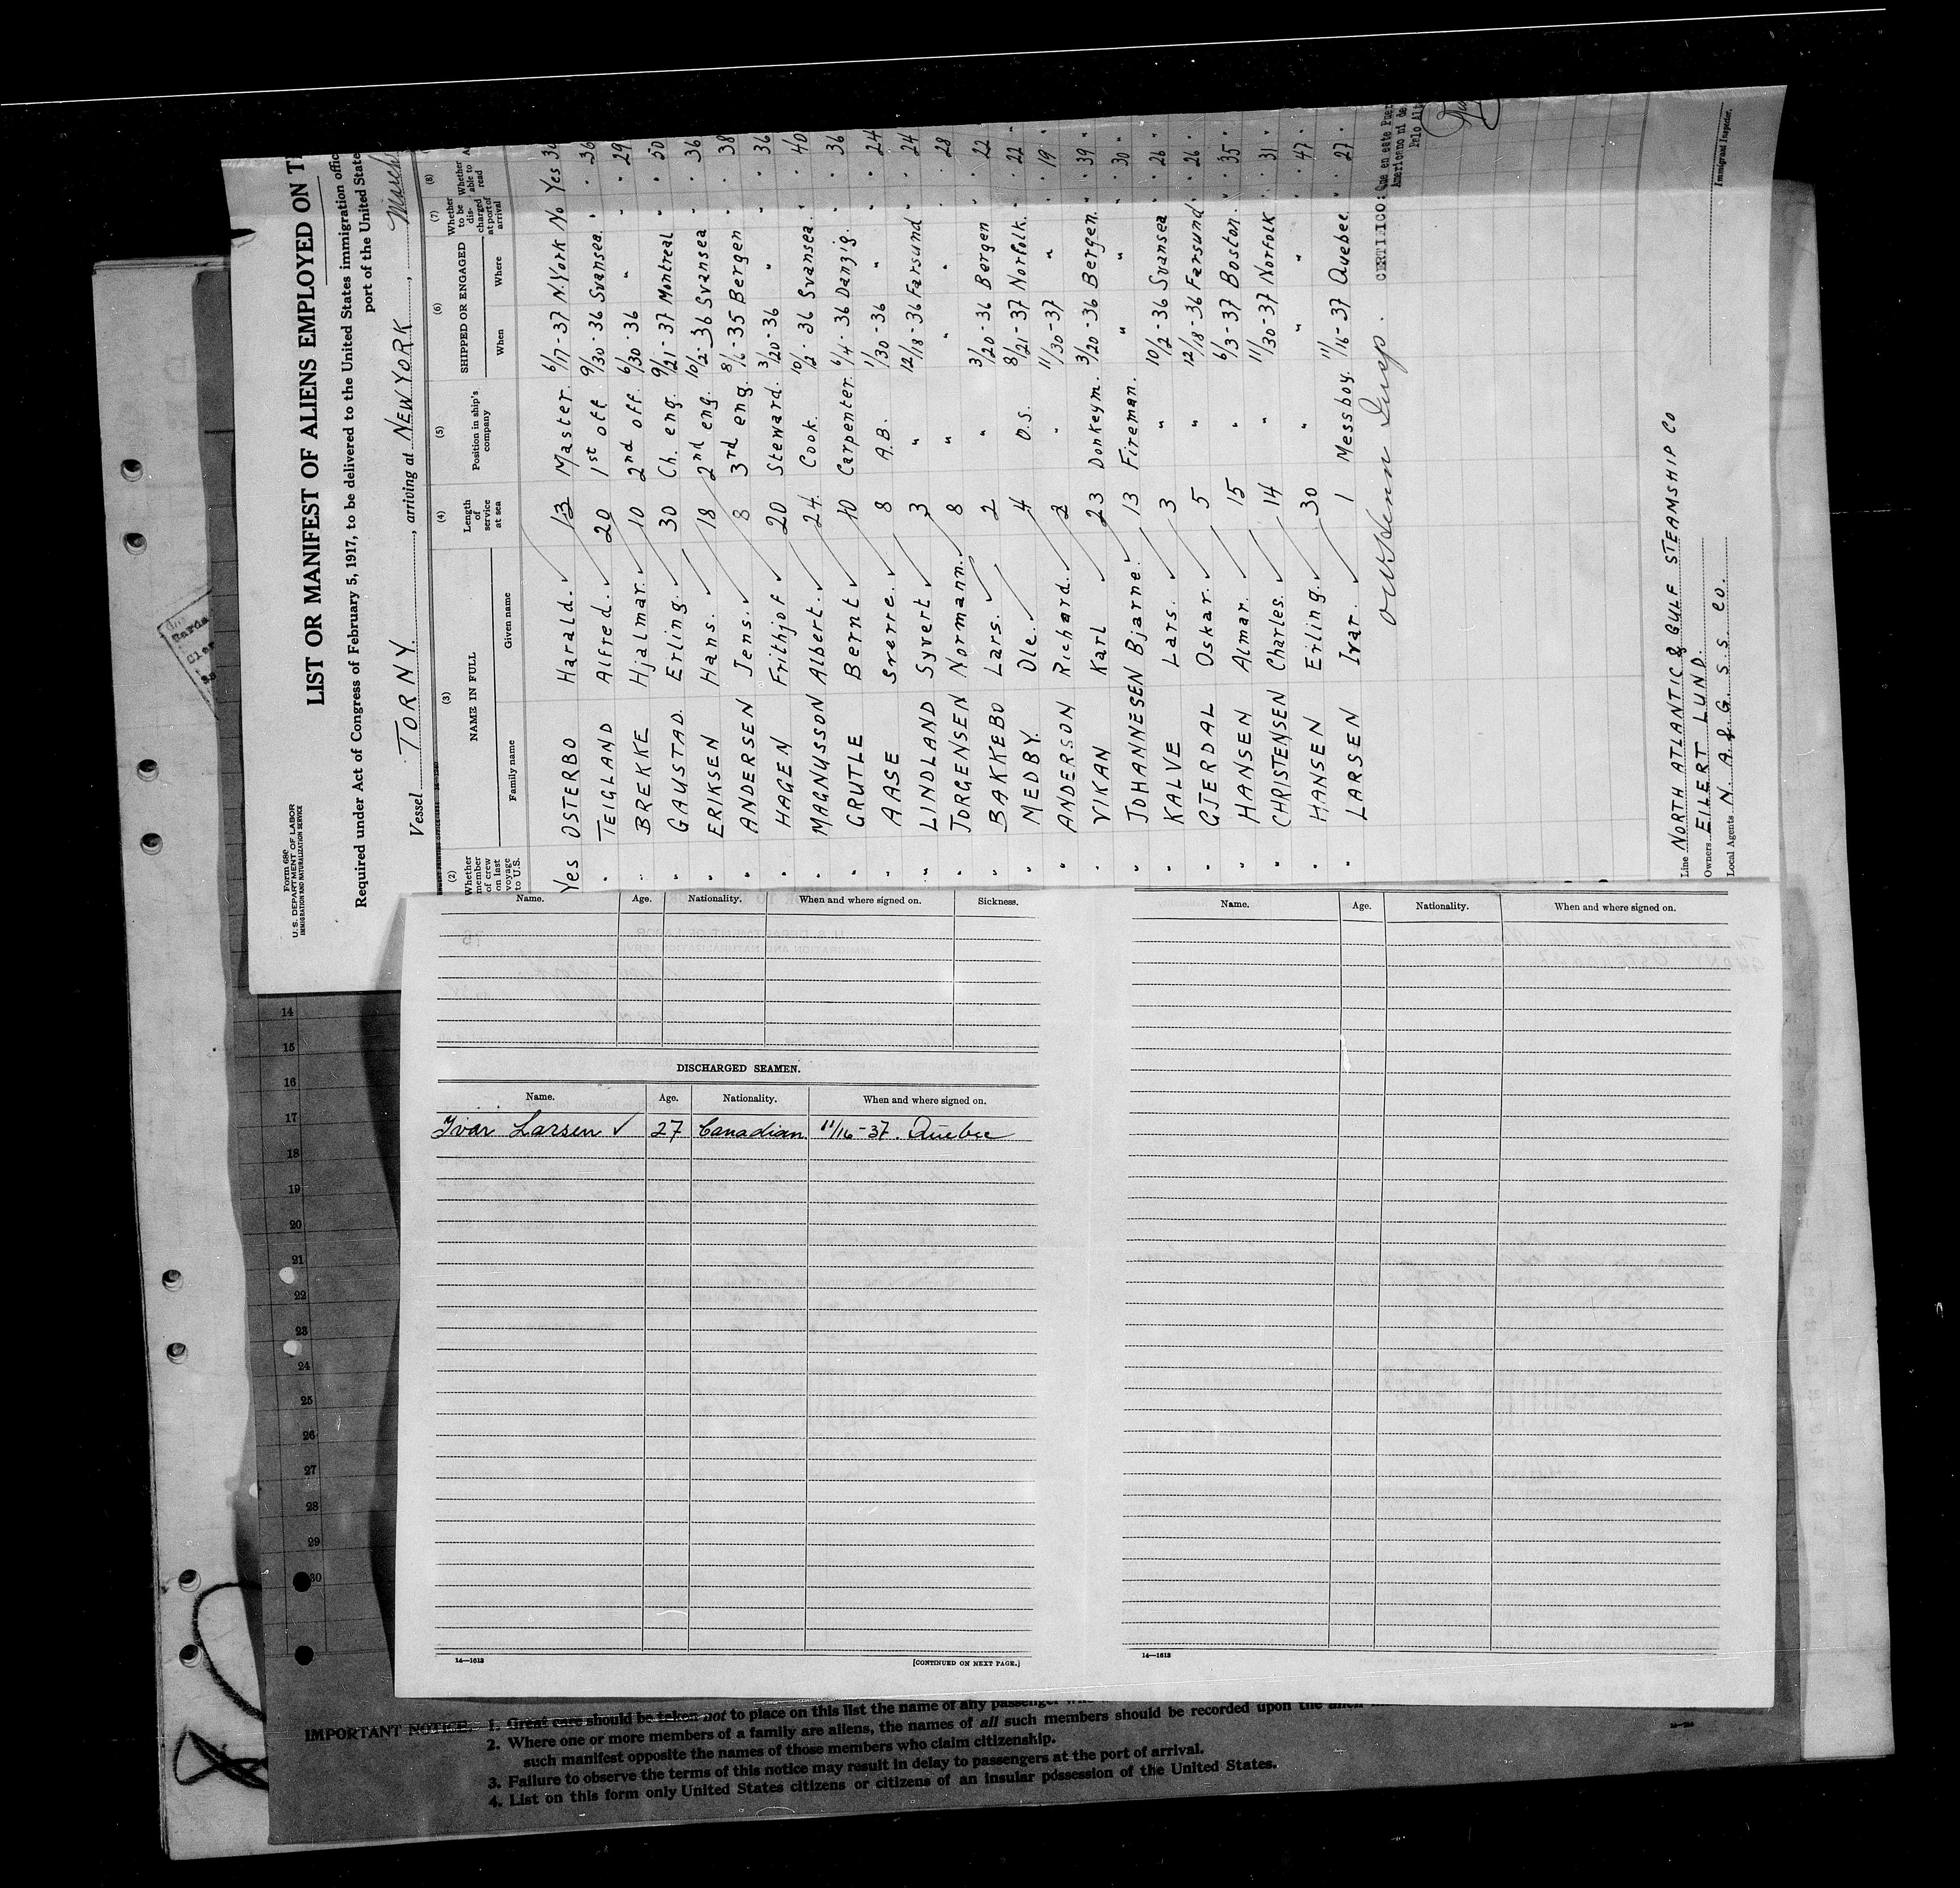 Form 680
U. S. DEPARTMENT OF LABOR
IMMIGRATION AND NATURALIZATION SERVICE
LIST OR MANIFEST OF ALIENS EMPLOYED ON T
Required under Act of Congress of February 5, 1917, to be delivered to the United States immigration offic
port of the United State
Vessel TORNY., arriving at NEW YORK, March
(2) (3) (4) (5) (6) (7) (8)
Whether member of crew on last voyage to U.S. NAME IN FULL Length of service at sea Position in ship's company SHIPPED OR ENGAGED Whether to be discharged at port of arrival Whether able to read A
Family name Given name When Where
Yes OSTERBO Harald. ✓ 13 Master. 6/17-37 N.York No Yes
" TEIGLAND Alfred. ✓ 20 1st off 9/30-36 Svansea. " " 36
" BREKKE Hjalmar. ✓ 10 2nd off. 6/30-36 " " " 29
" GAUSTAD. Erling. ✓ 30 Ch. eng. 9/21-37 Montreal " " 50
" ERIKSEN Hans. ✓ 18 2nd eng. 10/2-36 Svansea " " 36
" ANDERSEN Jens. ✓ 8 3rd eng. 8/6-35 Bergen " " 38
" HAGEN Frithjof ✓ 20 Steward. 3/20-36 " " " 36
" MAGNUSSON Albert. ✓ 24. Cook. 10/2-36 Svansea. " " 40
" GRUTLE Bernt ✓ 10 Carpenter. 6/4-36 Danzig. " " 36
" AASE Sverre. ✓ 8 A.B. 1/30-36 " " " 24
" LINDLAND Syvert ✓ 3 " 12/18-36 Farsund " " 24
" JORGENSEN Normann. ✓ 8 " " " " " 28
" BAKKEBO Lars. ✓ 2 " 3/20-36 Bergen " " 22
" MEDBY. Ole. ✓ 4 O.S. 8/21-37 Norfolk. " " 22
" ANDERSON Richard. ✓ 2 " 11/30-37 " " " 19
" VIKAN Karl ✓ 23 Donkeym. 3/20-36 Bergen. " " 39
" JOHANNESEN Bjarne. ✓ 13 Fireman. " " " " 30
" KALVE Lars. ✓ 3 " 10/2-36 Svansea " " 26
" GJERDAL Oskar. ✓ 5 " 12/18-36 Farsund " " 26
" HANSEN Almar. ✓ 15 " 6/3-37 Boston. " " 35
" CHRISTENSEN Charles. ✓ 14 " 11/30-37 Norfolk " " 31
" HANSEN Erling. ✓ 30 " " " " " 47
" LARSEN Ivar. ✓ 1 Messboy. 11/16-37 Quebec " " 27
CERTIFICO: Que en este Puer
Americano ni de
Pelo Alt
Line NORTH ATLANTIC & GULF STEAMSHIP CO
Owners EILERT LUND.
Local Agents N. A. & G. S. S. CO.
Immigrant Inspector.
Name. Age. Nationality. When and where signed on. Sickness.
DISCHARGED SEAMEN.
Name. Age. Nationality. When and where signed on.
Ivar Larsen ✓ 27 Canadian. 11/16-37. Quebec
14—1613 [CONTINUED ON NEXT PAGE.]
Name. Age. Nationality. When and where signed on.
14—1613
14
15
16
17
18
19
20
21
22
23
24
25
26
27
28
29
30
IMPORTANT NOTICE.—1. Great care should be taken not to place on this list the name of any passenger
2. Where one or more members of a family are aliens, the names of all such members should be recorded upon the alien
such manifest opposite the names of those members who claim citizenship.
3. Failure to observe the terms of this notice may result in delay to passengers at the port of arrival.
4. List on this form only United States citizens or citizens of an insular possession of the United States.